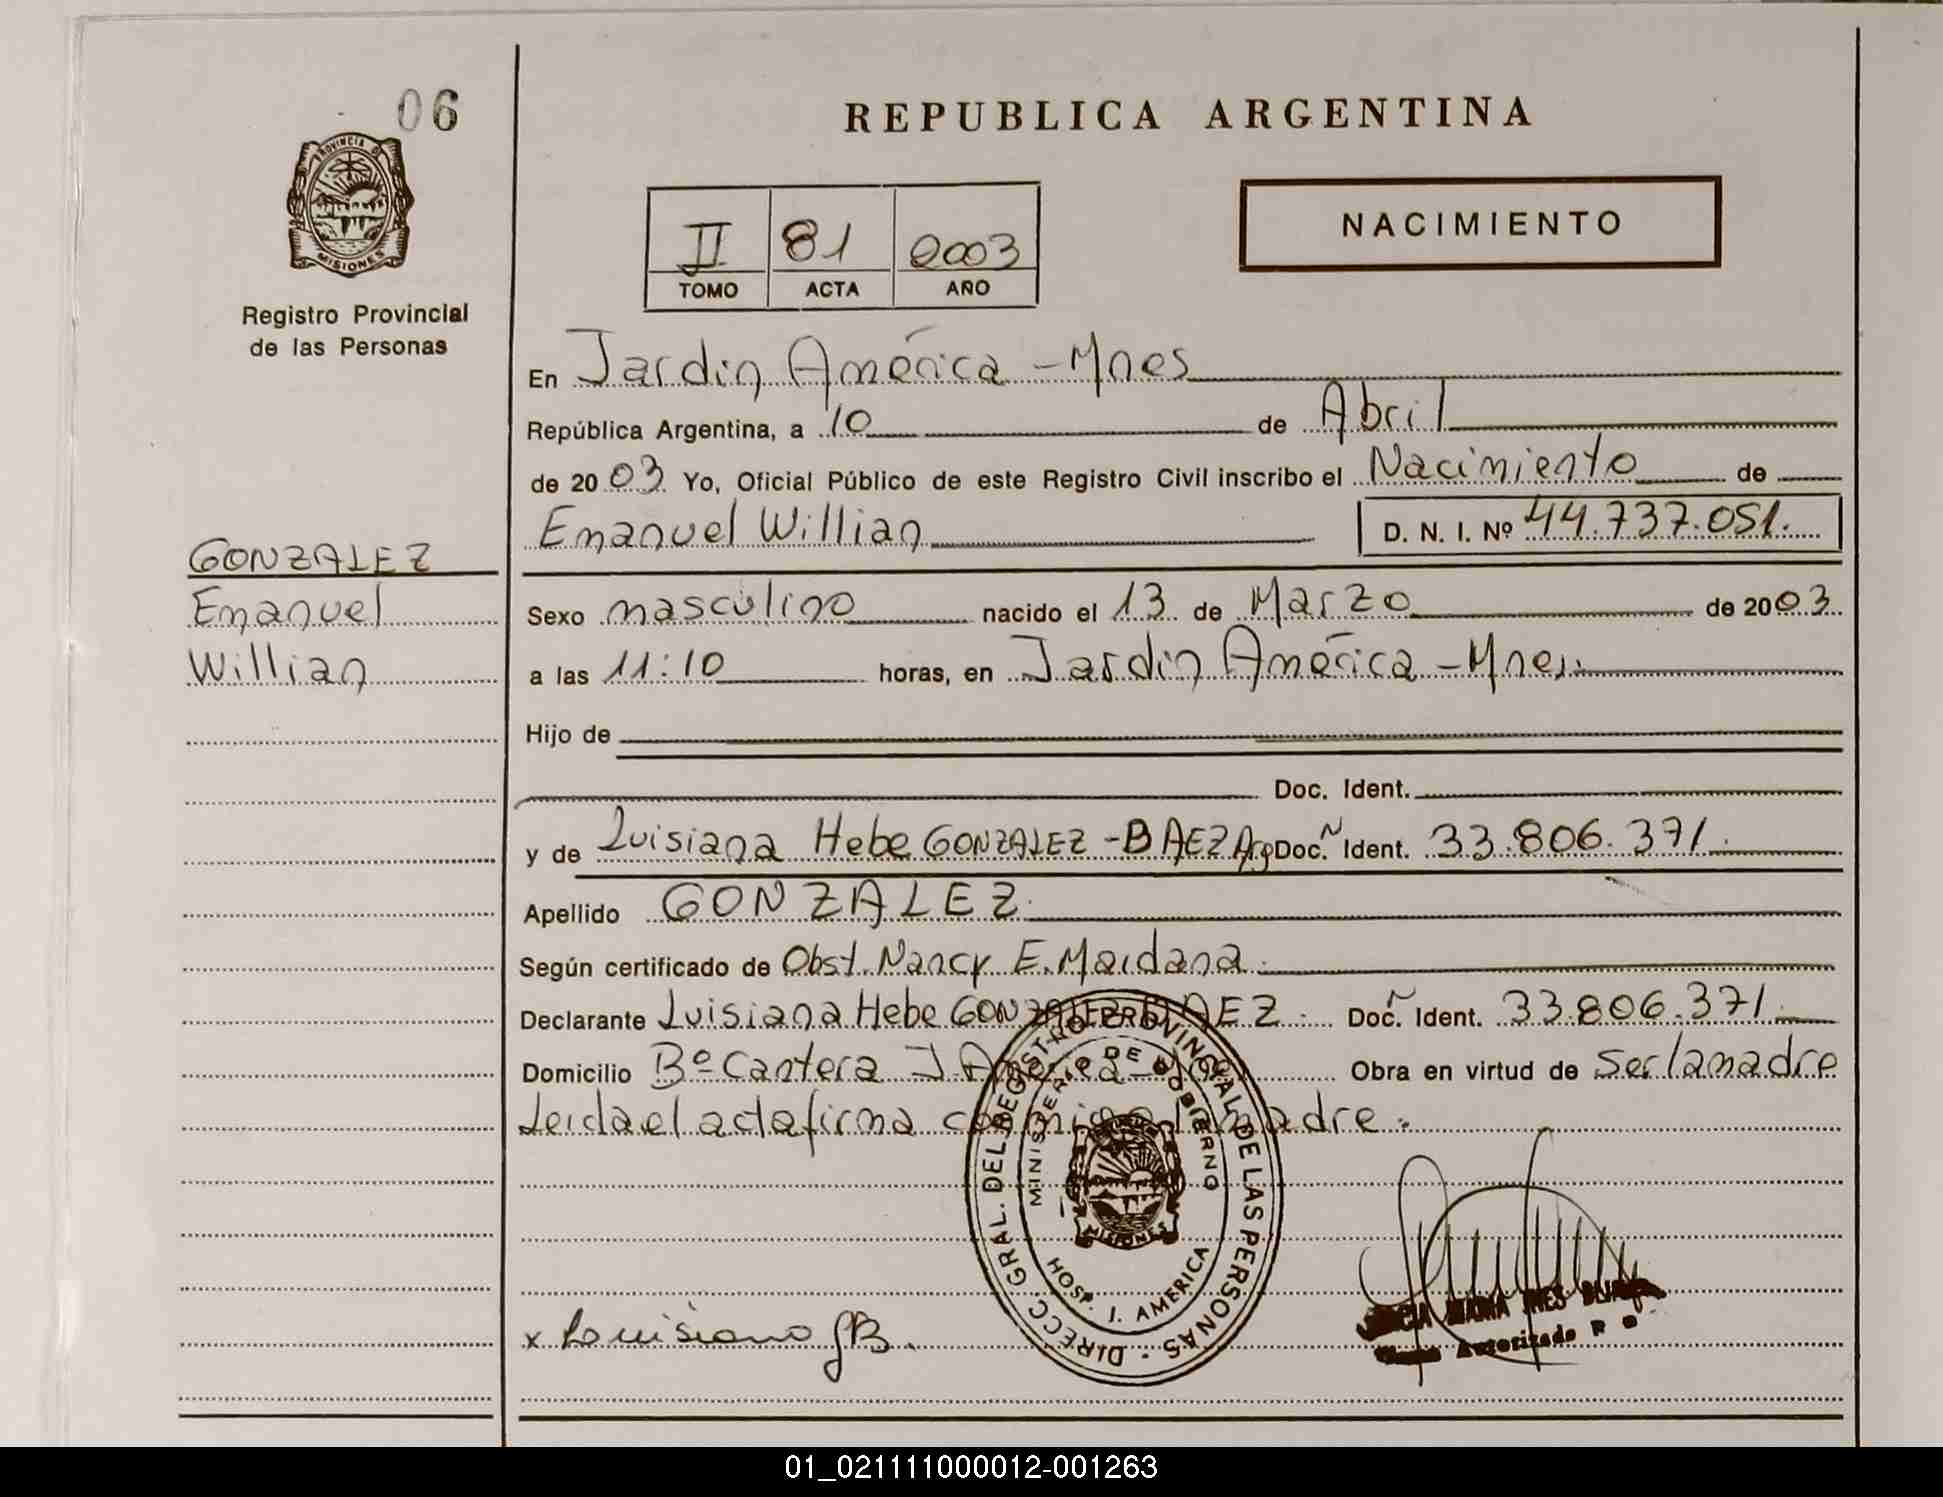 06
PROVINCIA DE
MISIONES
Registro Provincial
de las Personas
GONZALEZ
Emanuel
Willian
REPUBLICA ARGENTINA
II 81 2003
TOMO ACTA AÑO
NACIMIENTO
En Jardin América - Mnes
República Argentina, a 10 de Abril
de 2003 Yo, Oficial Público de este Registro Civil inscribo el Nacimiento de
Emanuel Willian D. N. I. Nº 44.737.051.
Sexo masculino nacido el 13 de Marzo de 2003
a las 11:10 horas, en Jardin América - Mnes.
Hijo de
Doc. Ident.
y de Luisiana Hebe GONZALEZ - BAEZ Arg Doc. Ident. 33.806.371.
Apellido GONZALEZ.
Según certificado de Obst. Nancy E. Maidana.
Declarante Luisiana Hebe GONZALEZ BAEZ. Doc. Ident. 33.806.371.
Domicilio Bº Cantera J. América - Obra en virtud de ser la madre
Leida el acta firma conmigo la madre.
DIRECC. GRAL. DEL REGISTRO PROVINCIAL DE LAS PERSONAS
MINISTERIO DE GOBIERNO
MISIONES
HOSP. J. AMERICA
x Louisiana GB.
MARIA INES
Autorizado
01_021111000012-001263